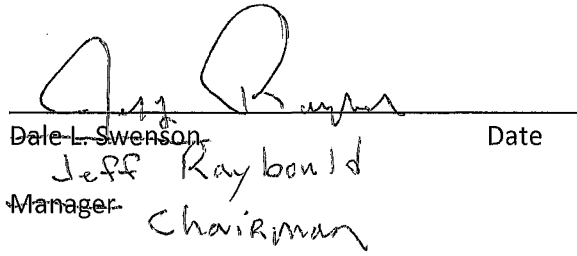 Jeff Raybould
Dale L. Swenson Date
Jeff Raybould
Manager
Chairman